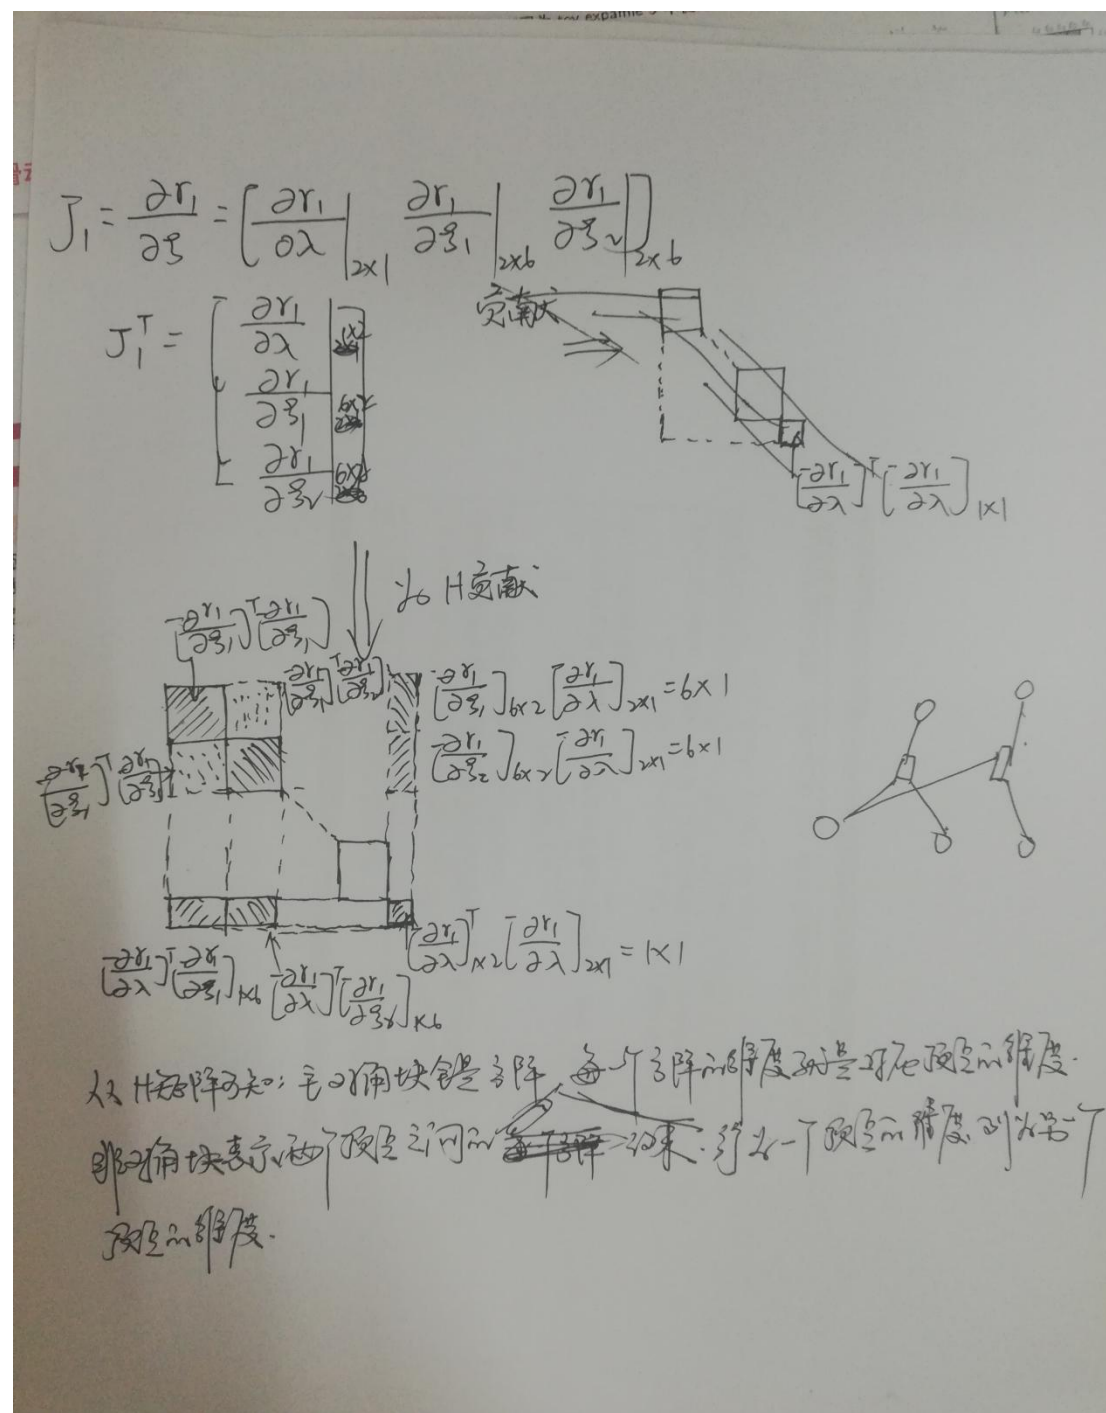 J₁ = ∂r₁/∂ξ = [ ∂r₁/∂λ |2×1 ∂r₁/∂ξ₁ |2×6 ∂r₁/∂ξ₂ | ]2×6
J₁ᵀ = [ ∂r₁/∂λ | 1×2
∂r₁/∂ξ₁ | 6×2
∂r₁/∂ξ₂ | 6×2 ]
贡献
[∂r₁/∂λ]ᵀ [∂r₁/∂λ]1×1
为 H贡献
[∂r₁/∂ξ₁]ᵀ [∂r₁/∂ξ₁]
[∂r₁/∂ξ₁]ᵀ [∂r₁/∂ξ₂]
[∂r₁/∂ξ₁]6×2 [∂r₁/∂λ]2×1 = 6×1
[∂r₁/∂ξ₂]6×2 [∂r₁/∂λ]2×1 = 6×1
[∂r₁/∂λ]ᵀ1×2 [∂r₁/∂λ]2×1 = 1×1
[∂r₁/∂λ]ᵀ [∂r₁/∂ξ₁]1×6 [∂r₁/∂λ]ᵀ [∂r₁/∂ξ₂]1×6
从H矩阵可知: 主对角块都是方阵 每一个方阵的维度都是对应顶点的维度.
非对角块表示两个顶点之间的 约束. 行为一个顶点的维度 列为另一个
顶点的维度.